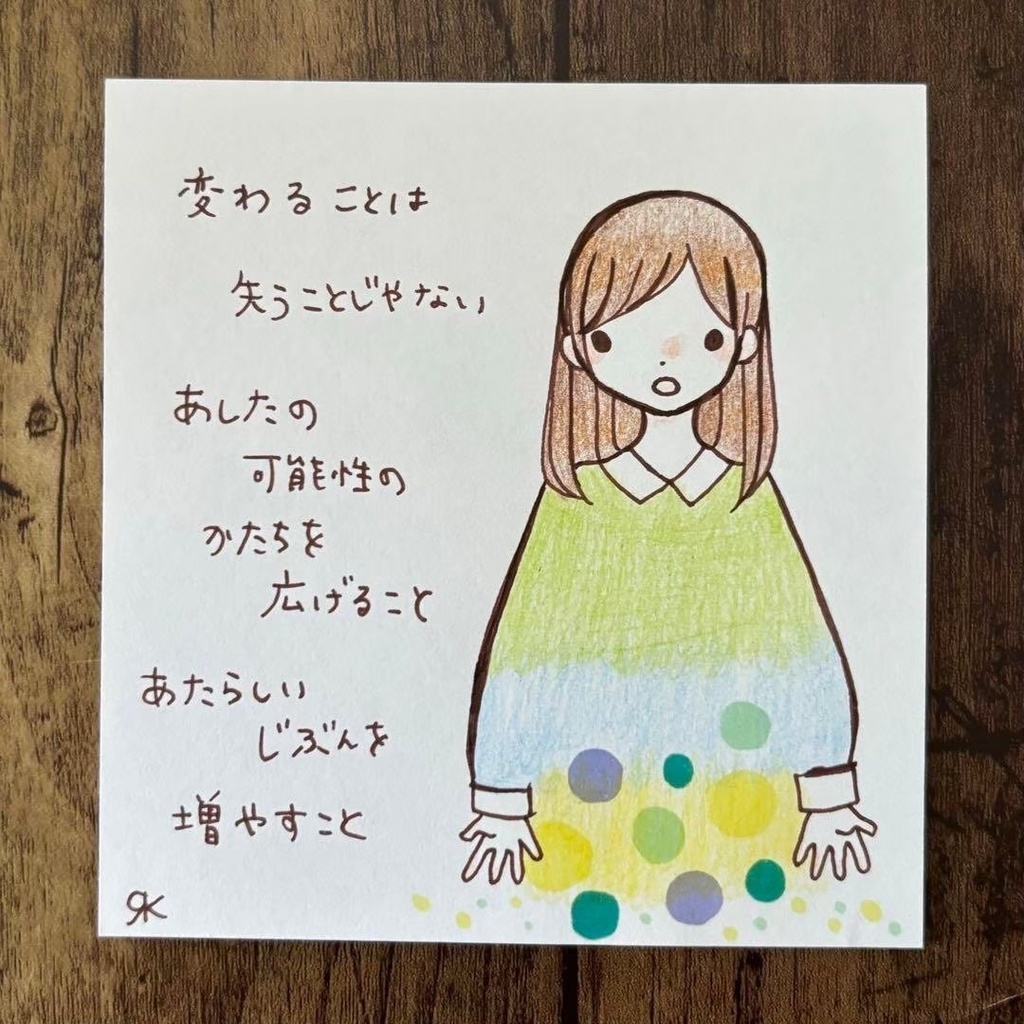 変わることは
失うことじゃない
あしたの
可能性の
かたちを
広げること
あたらしい
じぶんを
増やすこと